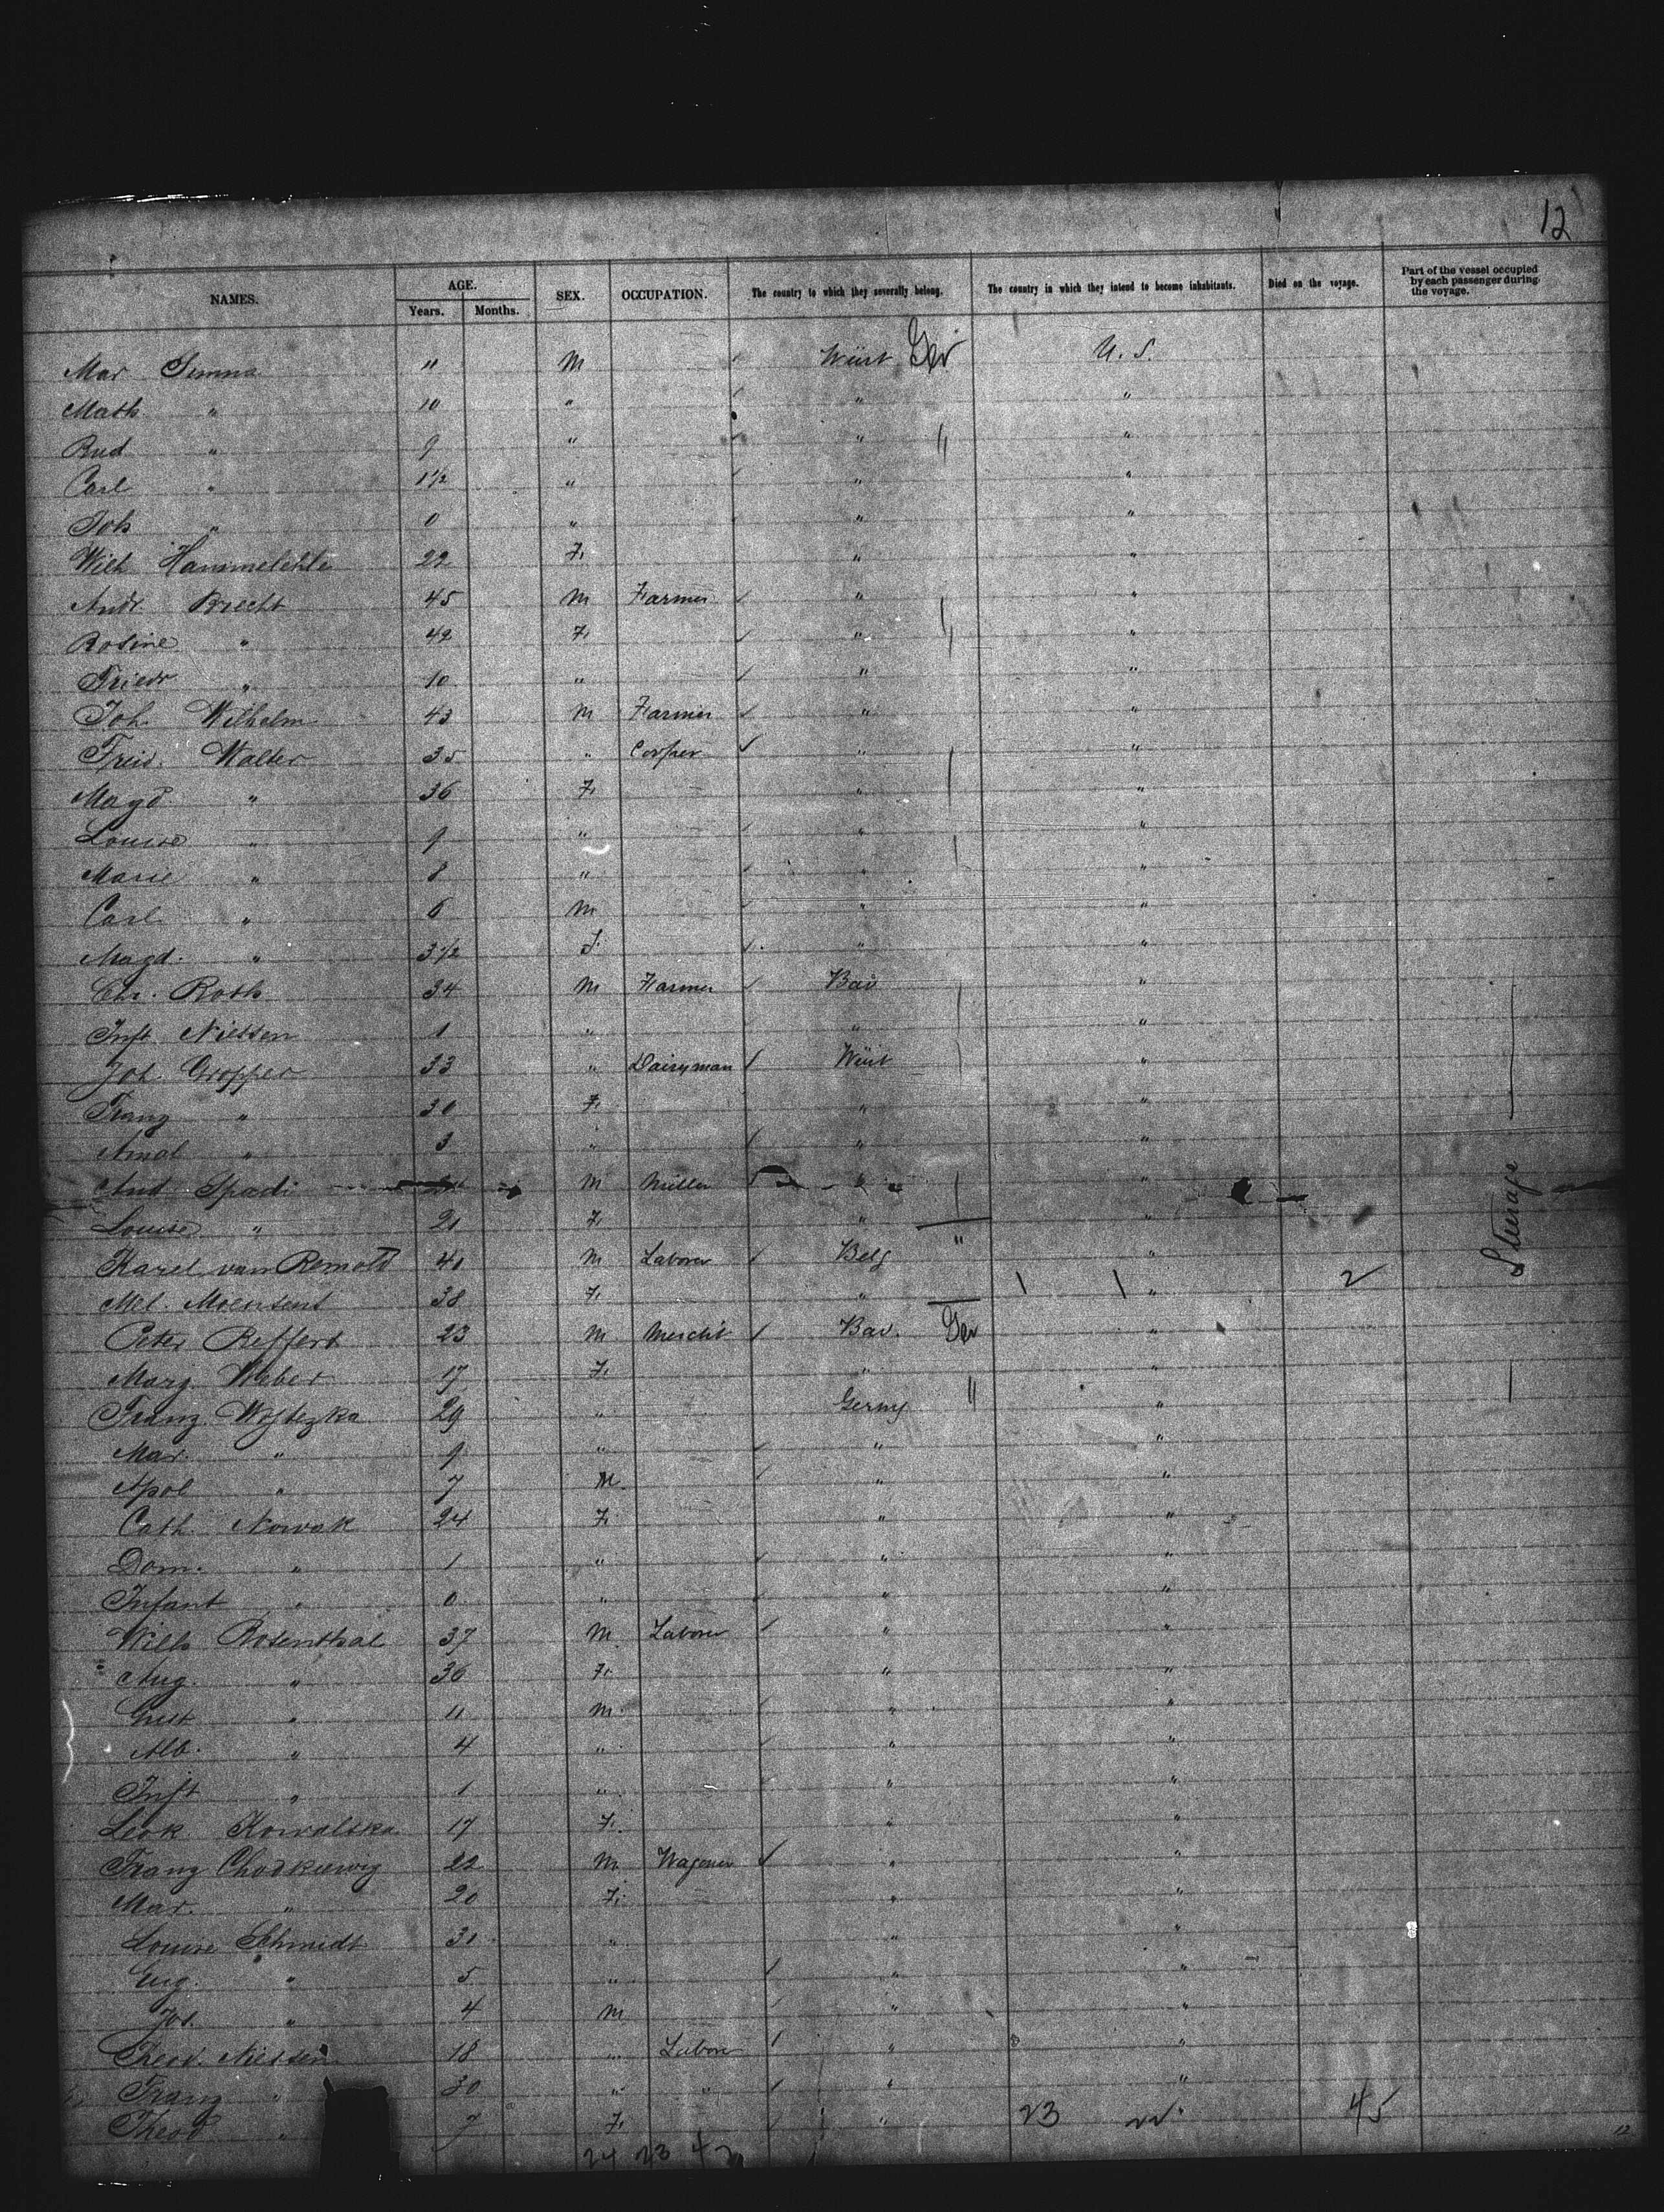 12
NAMES. AGE. Years. Months. SEX. OCCUPATION. The country to which they severally belong. The country in which they intend to become inhabitants. Died on the voyage. Part of the vessel occupied by each passenger during the voyage.
Mar " M Würt Ger U. S.
Math " 10 " " "
Rud " 9 " " " "
Carl " 1½ " " "
Joh " 0 " " "
Wilh 22 F. " "
Andr. Brecht 45 M Farmer " "
Rosine " 42 F. " "
Friedr " 10 " " "
Joh. Wilhelm 43 M Farmer " "
Fried. Walter 35 " Cooper " "
Magd. " 36 F. " "
Louise " 9 " " "
Marie " 8 " " "
Carl " 6 M " "
Magd. " 3½ F. " "
Chr. Roth 34 M Farmer Bav "
Inft. Nielsen 1 " " "
Joh. Gropper 33 " Dairyman Würt "
Franz " 30 F. " "
Amal " 3 " " "
And Spadi M Miller " "
Louise " 21 F. " "
Karel van Remold 41 M Laborer Belg " "
Mel. 38 F. " 1 1 " 2
Steerage
Peter Reffert 23 M Mercht Bav. Ger "
Marg. Weber 17 F. " "
Franz. Wojtezka 29 " Germy " "
Mar. " 9 " " "
Apol " 7 M. " "
Cath Nowak 24 F. " "
Dom. " 1 " " "
Infant " 0 " " "
Wilh Rosenthal 37 M. Laborer " "
Aug. " 36 F. " "
Gust " 11 M. " "
Alb. " 4 " " "
Inft " 1 " " "
Leok Kowalska 17 F. " "
Franz Chodkiewig 22 M. Wagoner " "
Mar. " 20 F. " "
Louise Schmidt 31 " " "
Eug. " 5 " " "
Jos. " 4 M " "
Theod. Nielsen 18 " Labor " "
Franz " 30 " " " "
Theod " 7 F. " 23 22 45
24 23 47
12